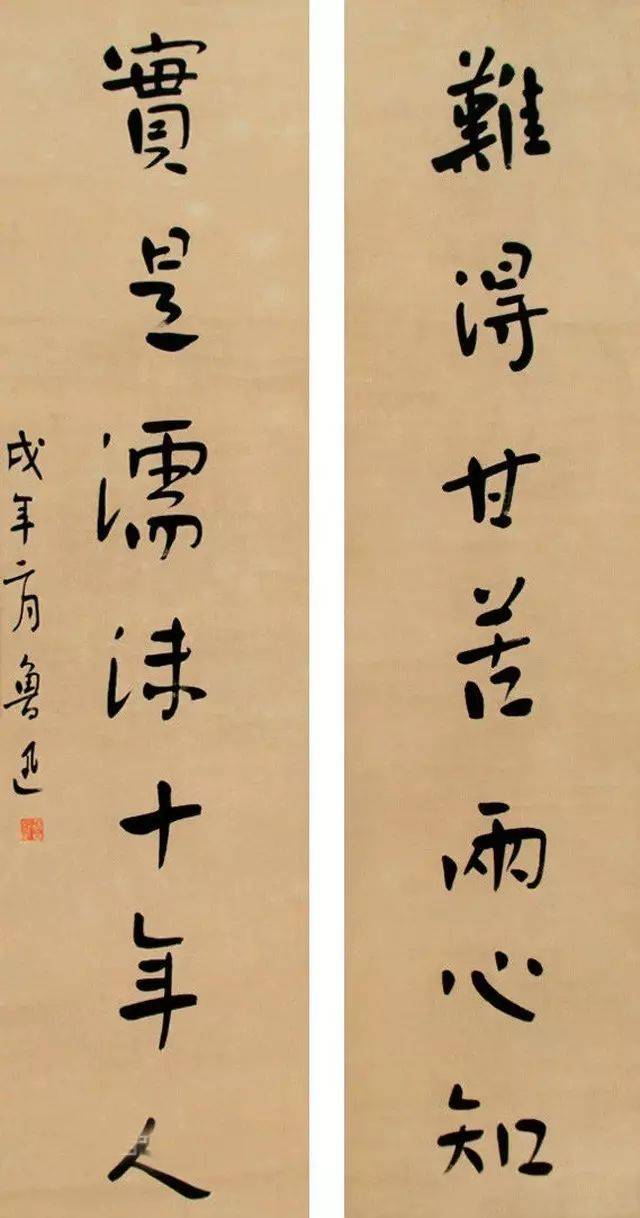 難得甘苦兩心知
實是濡沫十年人
戌年二月魯迅